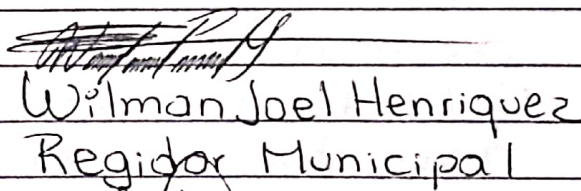 Wilman Joel Henriquez
Regidor Municipal